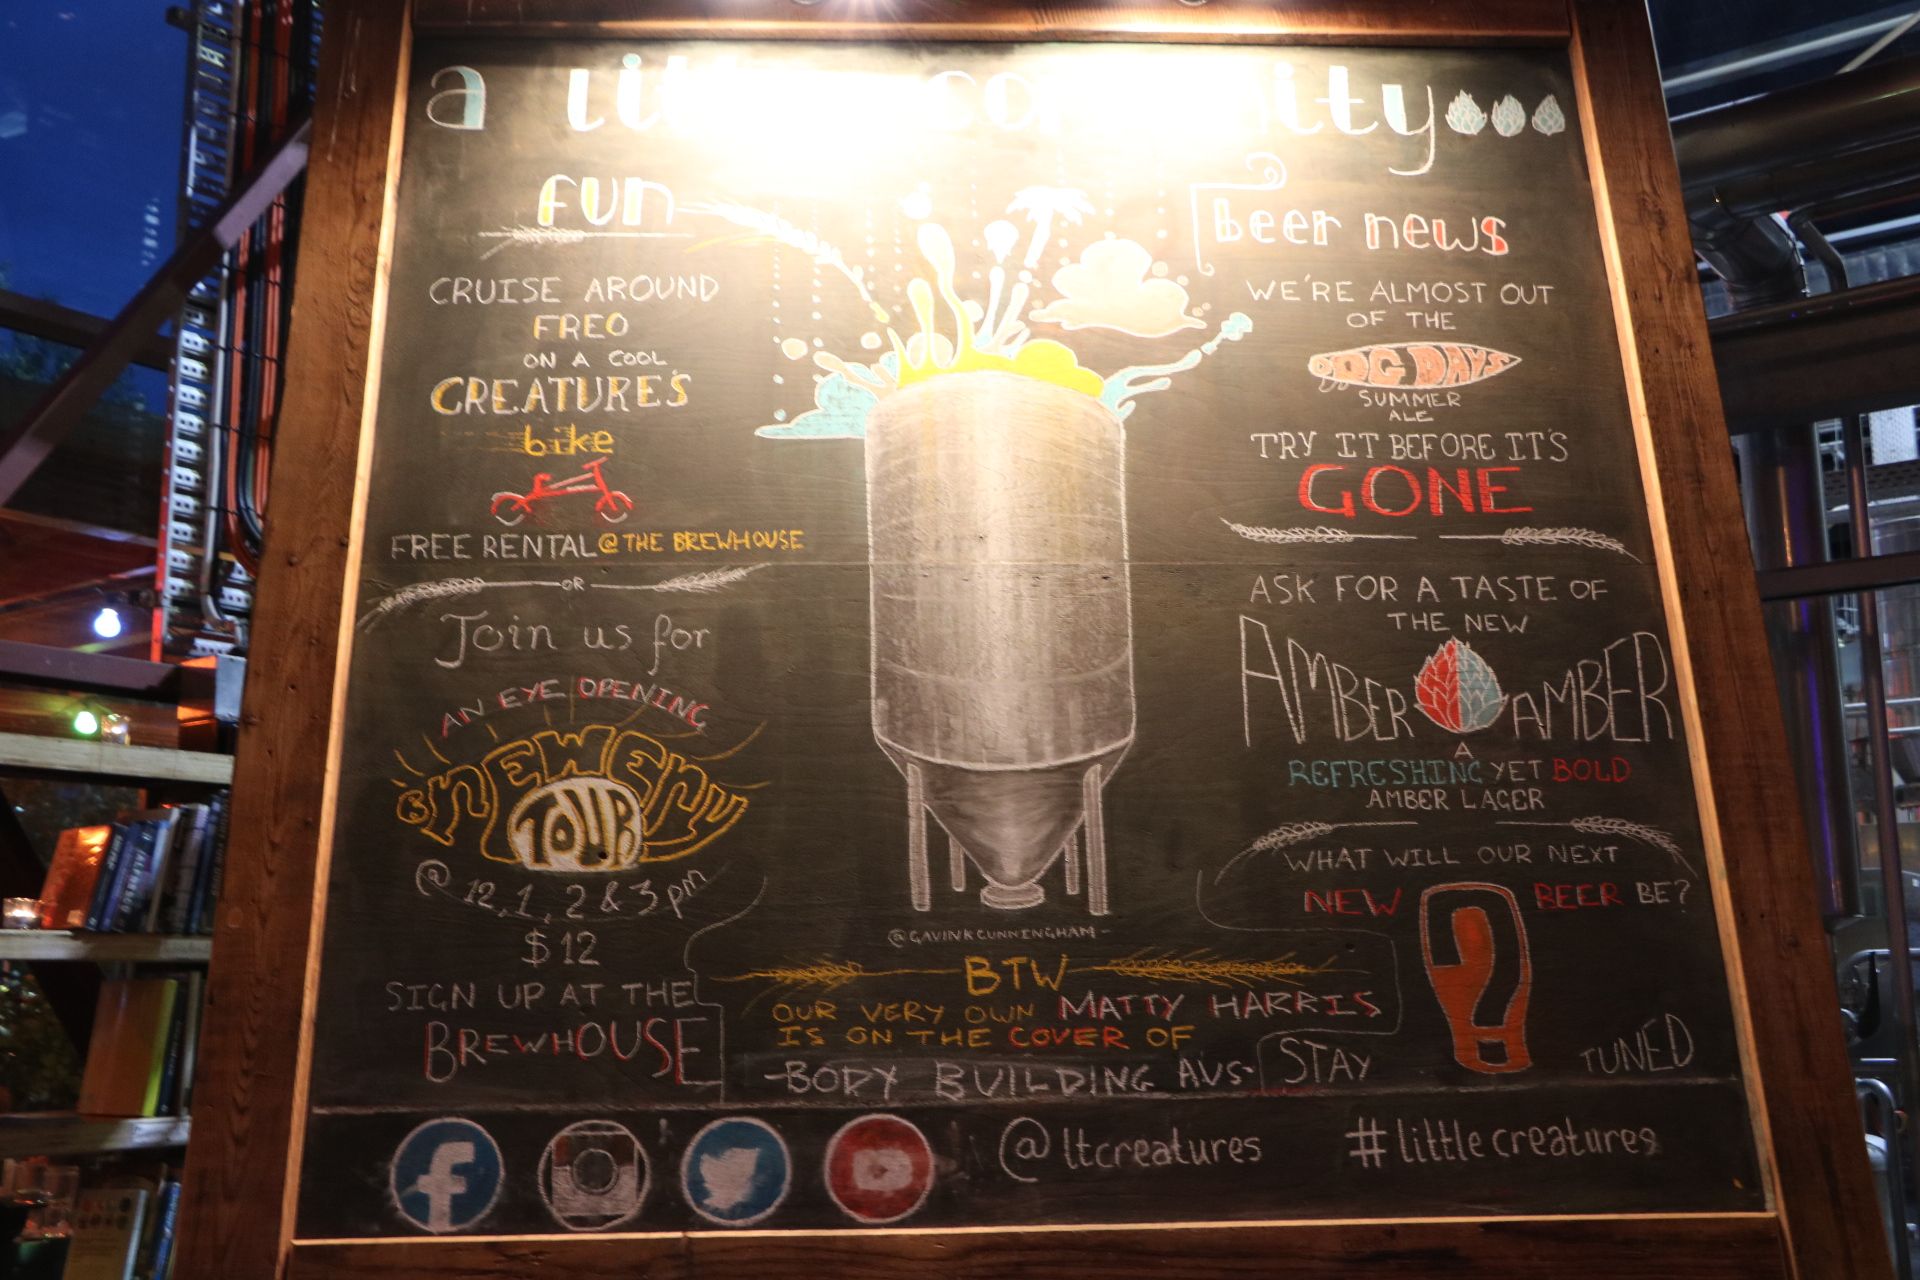 a
fun
CRUISE AROUND
FREO
ON A COOL
CREATURE'S
bike
FREE RENTAL @ THE BREWHOUSE
OR
Join us for
AN EYE OPENING
BREWERY
TOUR
@ 12, 1, 2 & 3 pm
$12
SIGN UP AT THE
BREWHOUSE
beer news
WE'RE ALMOST OUT
OF THE
DOG DAYS
SUMMER
ALE
TRY IT BEFORE IT'S
GONE
ASK FOR A TASTE OF
THE NEW
AMBER AMBER
A
REFRESHING YET BOLD
AMBER LAGER
WHAT WILL OUR NEXT
NEW BEER BE?
?
STAY TUNED
@GAVINKCUNNINGHAM-
BTW
OUR VERY OWN MATTY HARRIS
IS ON THE COVER OF
-BODY BUILDING AUS-
@ltcreatures #littlecreatures